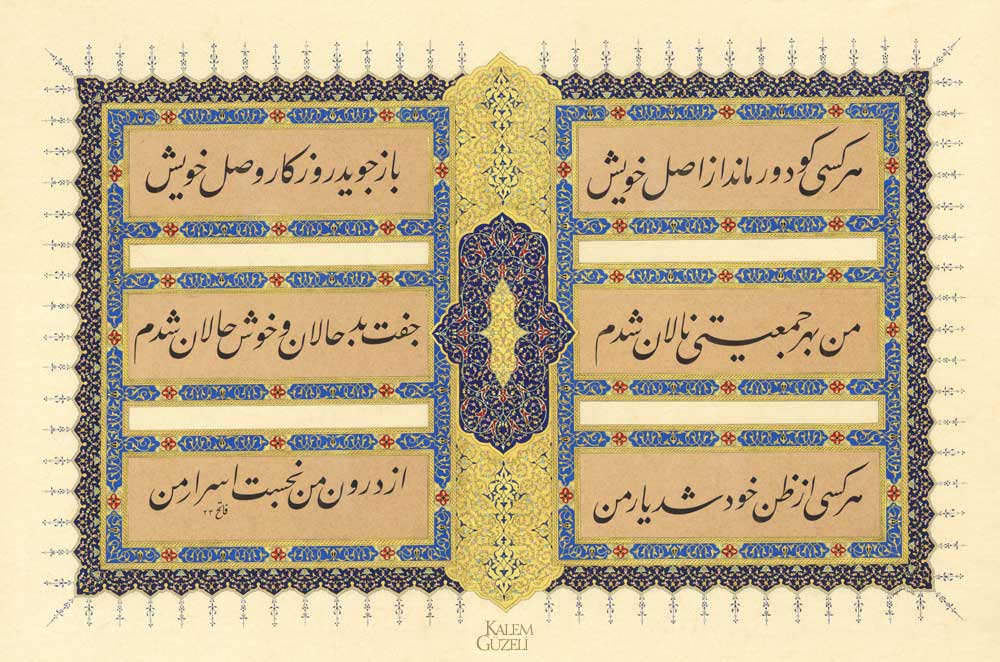 هر کسی کو دور ماند از اصل خویش
باز جوید روزگار وصل خویش
من بهر جمعیتی نالان شدم
جفت بد حالان و خوش حالان شدم
هر کسی از ظن خود شد یار من
از درون من نجست اسرار من
فاتح ۲۳
KALEM
GÜZELİ